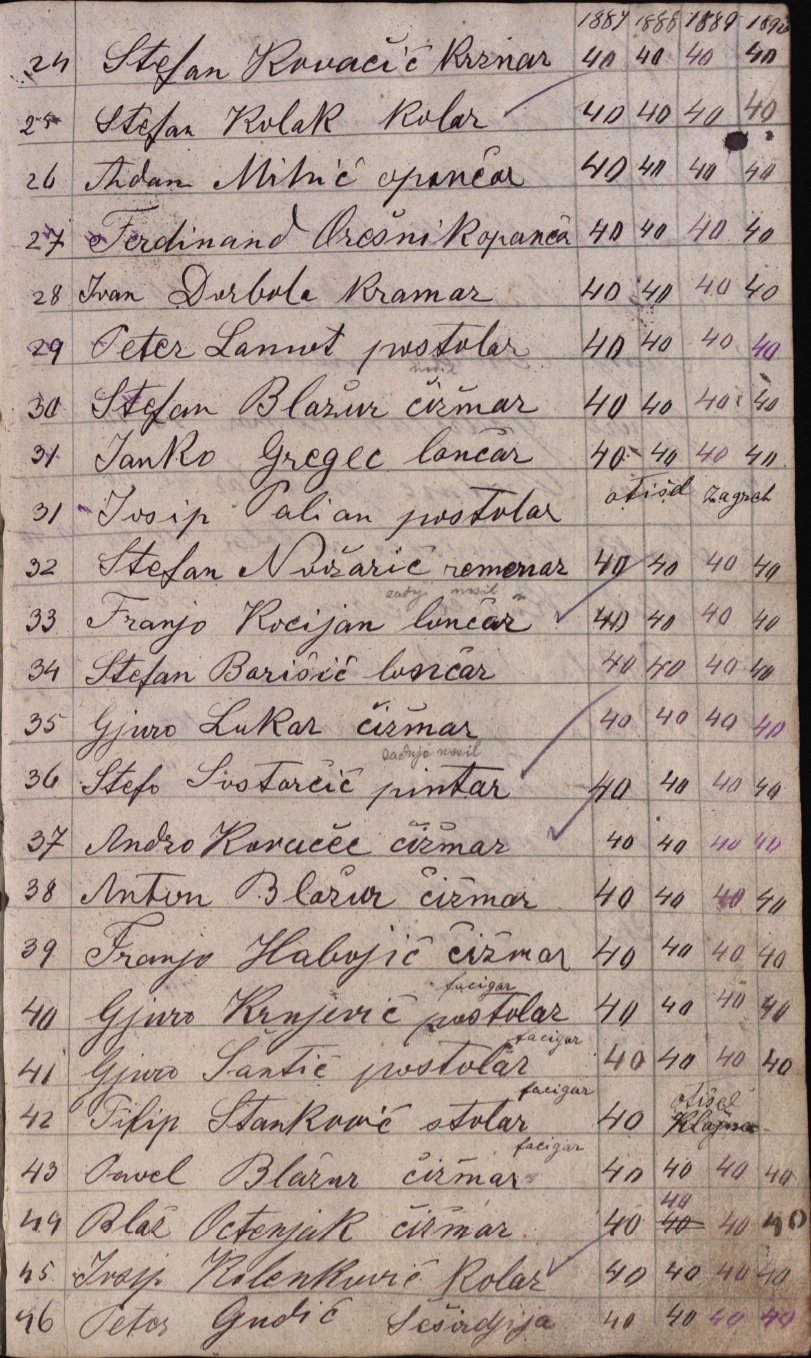 1887 1888 1889 1890
24 Stefan Kovačić Krznar 40 40 40 40
25 Stefan Kolak Kolar 40 40 40 40
26 Adam Mihić opančar 40 40 40 40
27 Ferdinand Orešnik opančar 40 40 40 40
28 Ivan Dorbola Kramar 40 40 40 40
29 Peter postolar 40 40 40 40
nosil
30 Stefan Blažur čižmar 40 40 40 40
31 Janko Gregec lončar 40 40 40 40
31 Josip Palian postolar otišel Zagreb
32 Stefan remenar 40 40 40 40
nosil
33 Franjo Kocijan lončar 40 40 40 40
34 Stefan Barišić lončar 40 40 40 40
35 Gjuro Lukar čižmar 40 40 40 40
zadnje nosil
36 Stefo Sostarčić pintar 40 40 40 40
37 Andro Kovačec čižmar 40 40 40 40
38 Anton Blažur čižmar 40 40 40 40
39 Franjo Habojić čižmar 40 40 40 40
facigar
40 Gjuro Krnjević postolar 40 40 40 40
facigar
41 Gjuro Santić postolar 40 40 40 40
facigar otišel
42 Filip Stanković stolar 40
facigar
43 Pavel Blažur čižmar 40 40 40 40
40
44 Blaž Octenjak čižmar 40 40 40 40
45 Josip Kolenković Kolar 40 40 40 40
46 Peter Gudić Seširdjija 40 40 40 40